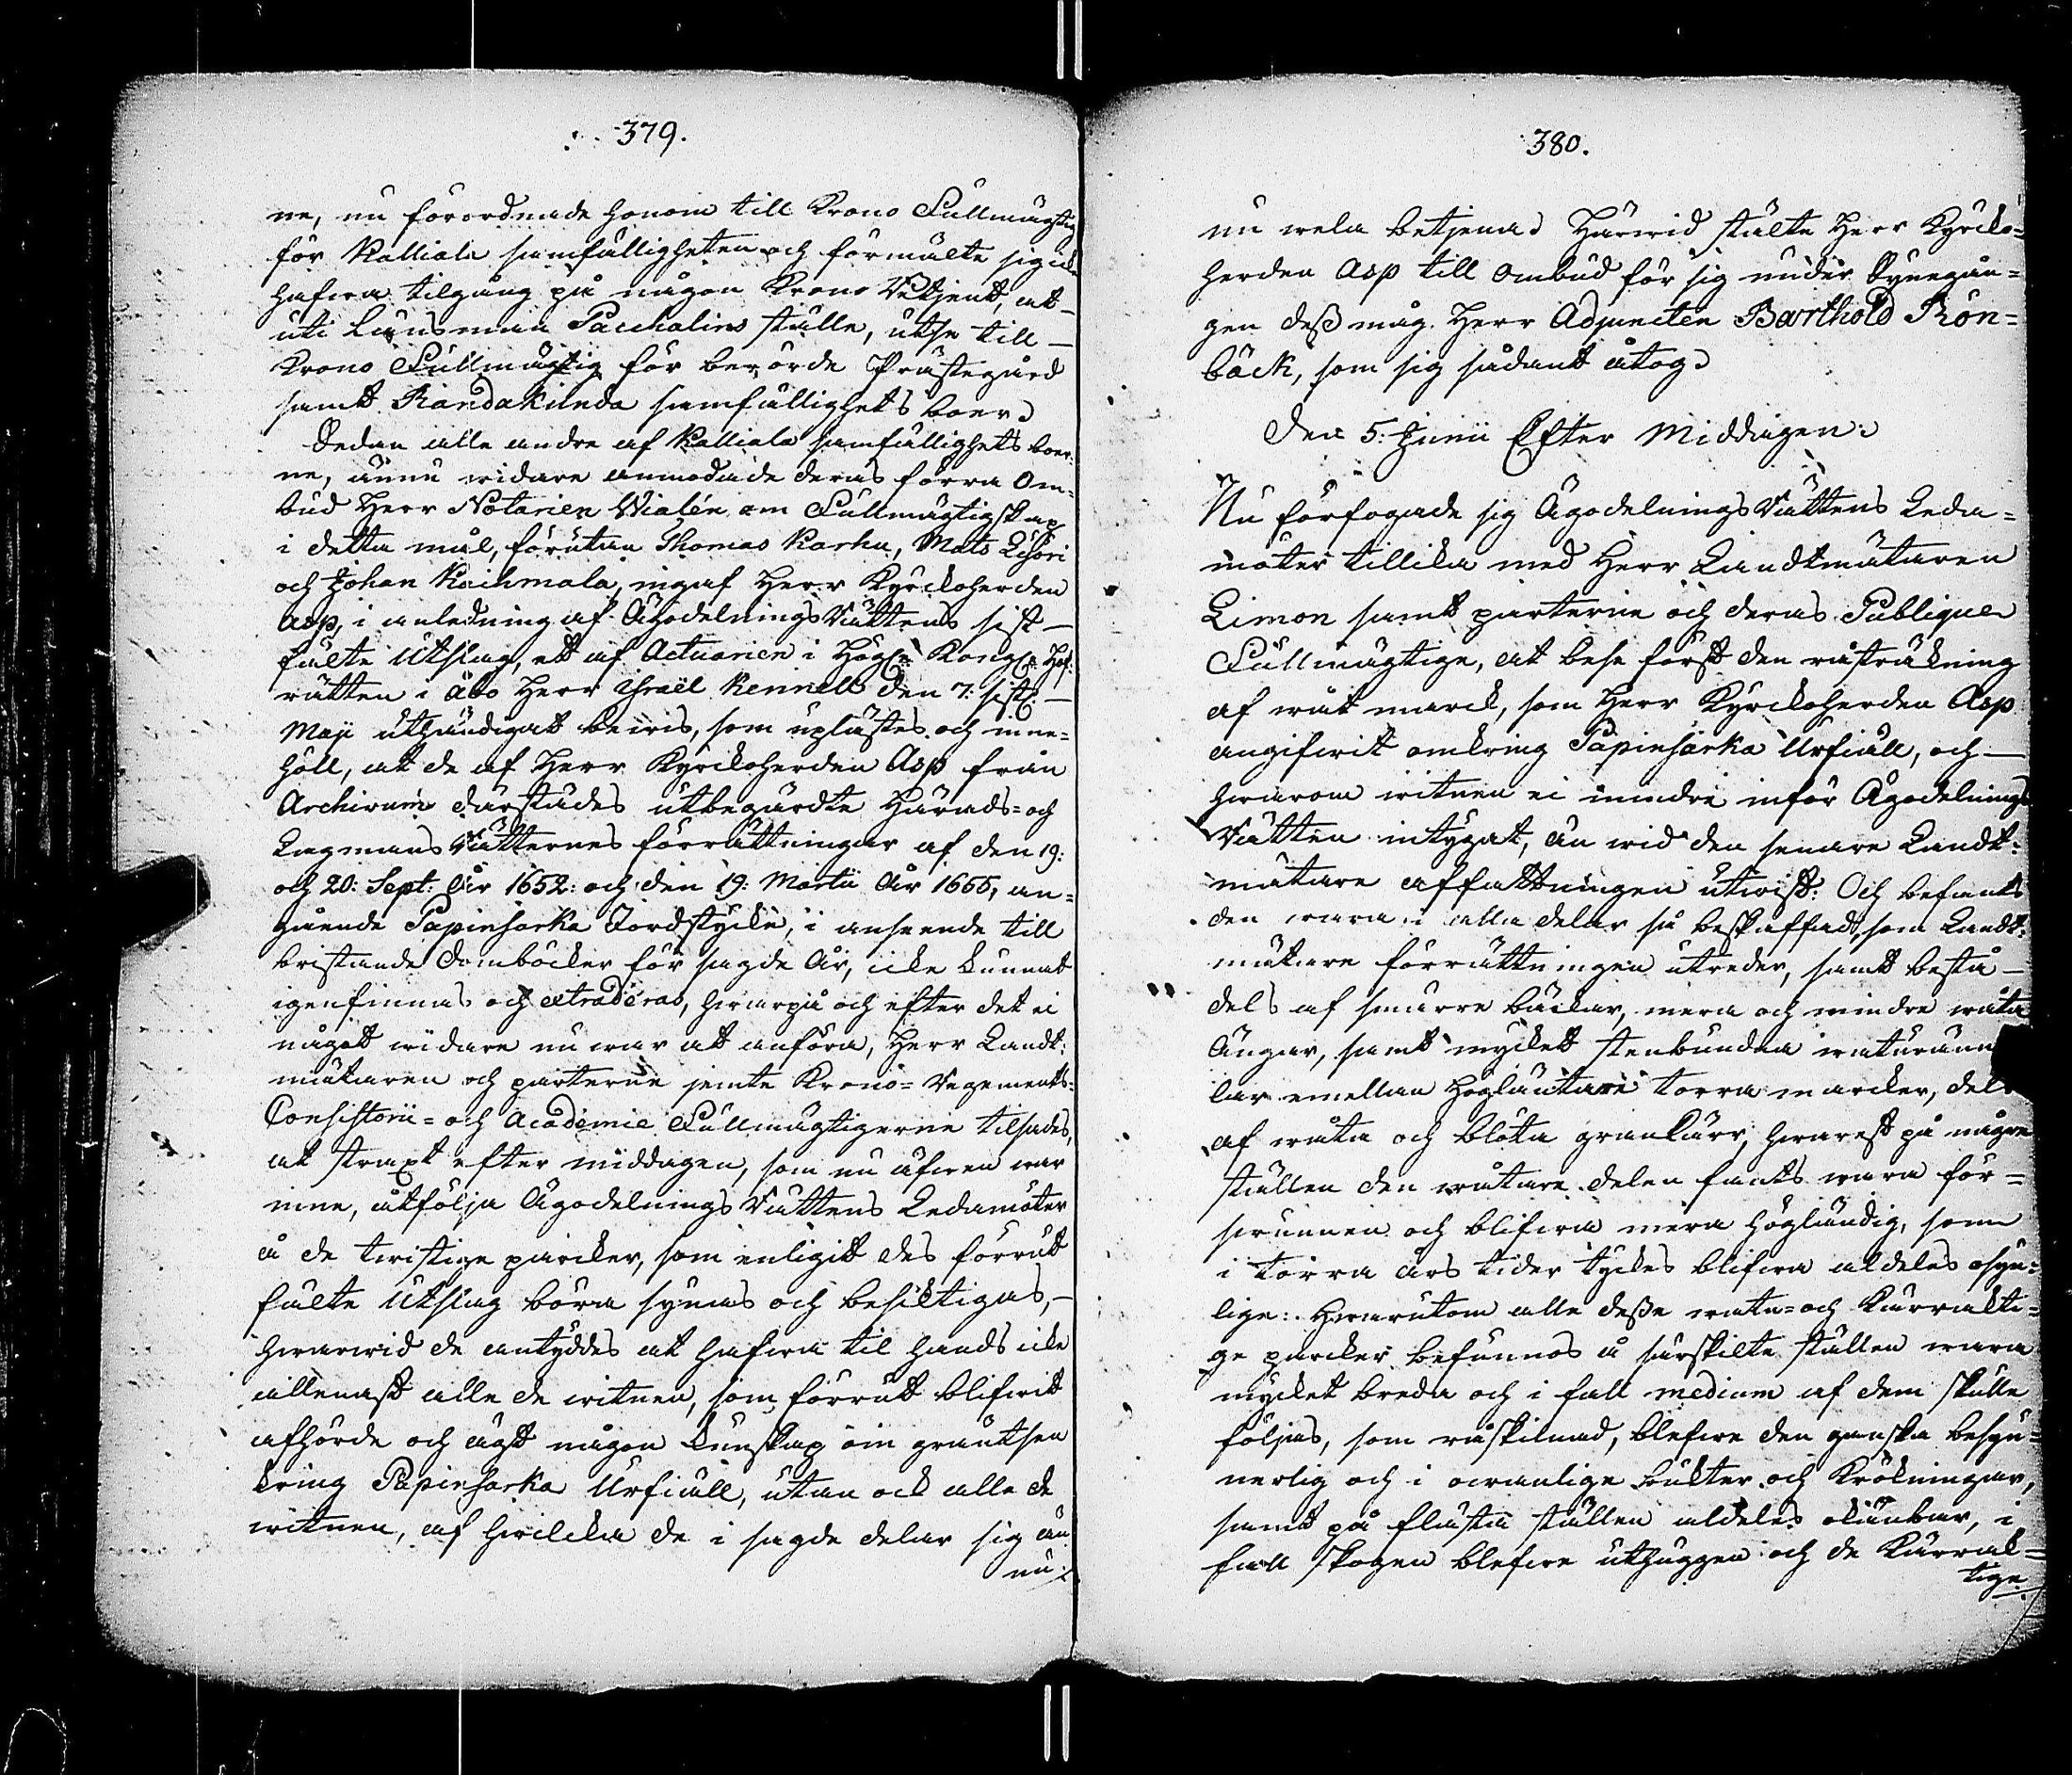 379.
ne, nu förordnade honom till Krono Fullmägtig
för Kalliala samfälligheten och förmälte sig icke
hafwa tilgång på någon Krono Betjent, at
uti Länsman Paschalins ställe, utse till
Krono Fullmägtig för berörde Prästegård
samt Kandakunda samfällighets boer.
Sedan alle andre af Kalliala samfällighets boer-
ne, ännu widare anmodade deras förra Om-
bud Herr Notarien Wialén om Fullmägtigskap
i detta mål, förutan Thomas Karhu, Mats
och Johan Koihmala, ingaf Herr Kyrckoherden
Asp, i anledning af Ägodelnings Rättens sist
fälte Utslag, ett af Actuarien i Högl: Kongl: Hof-
rätten i Åbo Herr Israël Kennell den 7: sistl:
Maji uthändigat bewis, som uplästes och inne-
höll, at de af Herr Kyrckoherden Asp från
Archivum därstädes utbegärdte Härads- och
Lagmans Rätternes förrättningar af den 19:
och 20: Sept: År 1652: och den 19: Martii År 1655, an-
gående Papinsarka Jordstycke, i anseende till
bristande Domböcker för sagde År, icke kunnat
igenfinnas och extraderas, hwarpå och efter det ei
något widare nu war att anföra, Herr Landt-
mätaren och parterne jemte Krono- Regements-
Consistorii- och Academie Fullmägtigerne tilsades,
at strax efter middagen, som nu äfwen war
inne, åtfölja Ägodelnings Rättens Ledamöter
å de twistige parcker, som enligit des förrut
fälte Utslag böra synas och besiktigas,
hwarwid de antyddes at hafwa til hands icke
allenast alle de witnen, som förrut blifwit
afhörde och ägt någon kunskap om gräntsen
kring Papinsarka Urfiäll, utan ock alle de
witnen, af hwilcka de i sagde delar sig än
nu
380.
nu wela betjena. Härwid stälte Herr Kyrcko-
herden Asp till ombud för sig under Synegån-
gen dess måg Herr Adjuncten Barthold Rön-
bäck, som sig sådant åtog.
Den 5: Junii Efter Middagen.
Nu förfogade sig Ägodelnings Rättens Leda-
möter tillika med Herr Landtmätaren
Limon samt parterne och deras Publique
Fullmägtige, at bese först den råsträckning
af wåt marck, som Herr Kyrckoherden Asp
angifwit omkring Papinsarka Urfiäll, och
hwarom witnen ei mindre inför Ägodelnings
Rätten intygat, än wid den senare Landt-
mätare affattningen utwist: Och befants
den wara i alla delar så beskaffad, som Landt-
mätare förrättningen utreder, samt bestå
dels af smärre bäckar, mera och mindre wåta
Ängar, samt mycket stenbundna
lar emellan högländtare torra marcker, dels
af wåta och blöta grankärr, hwarest på någre
ställen den wåtare delen fants wara för-
swunnen och blifwa mera högländig, som
i torra års tider tyckes blifwa aldeles osyn-
lige: Hwarutom alle desse wåta- och kärrakti-
ge parcker befunnos å särskilte ställen wara
mycket breda och i fall medium af dem skulle
följas, som råskilnad, blefwe den ganska besyn-
nerlig och i owanlige bukter och krökningar,
samt på flästa ställen aldeles okänbar, i
fall skogen blefwe uthuggen och de kärrak-
tige